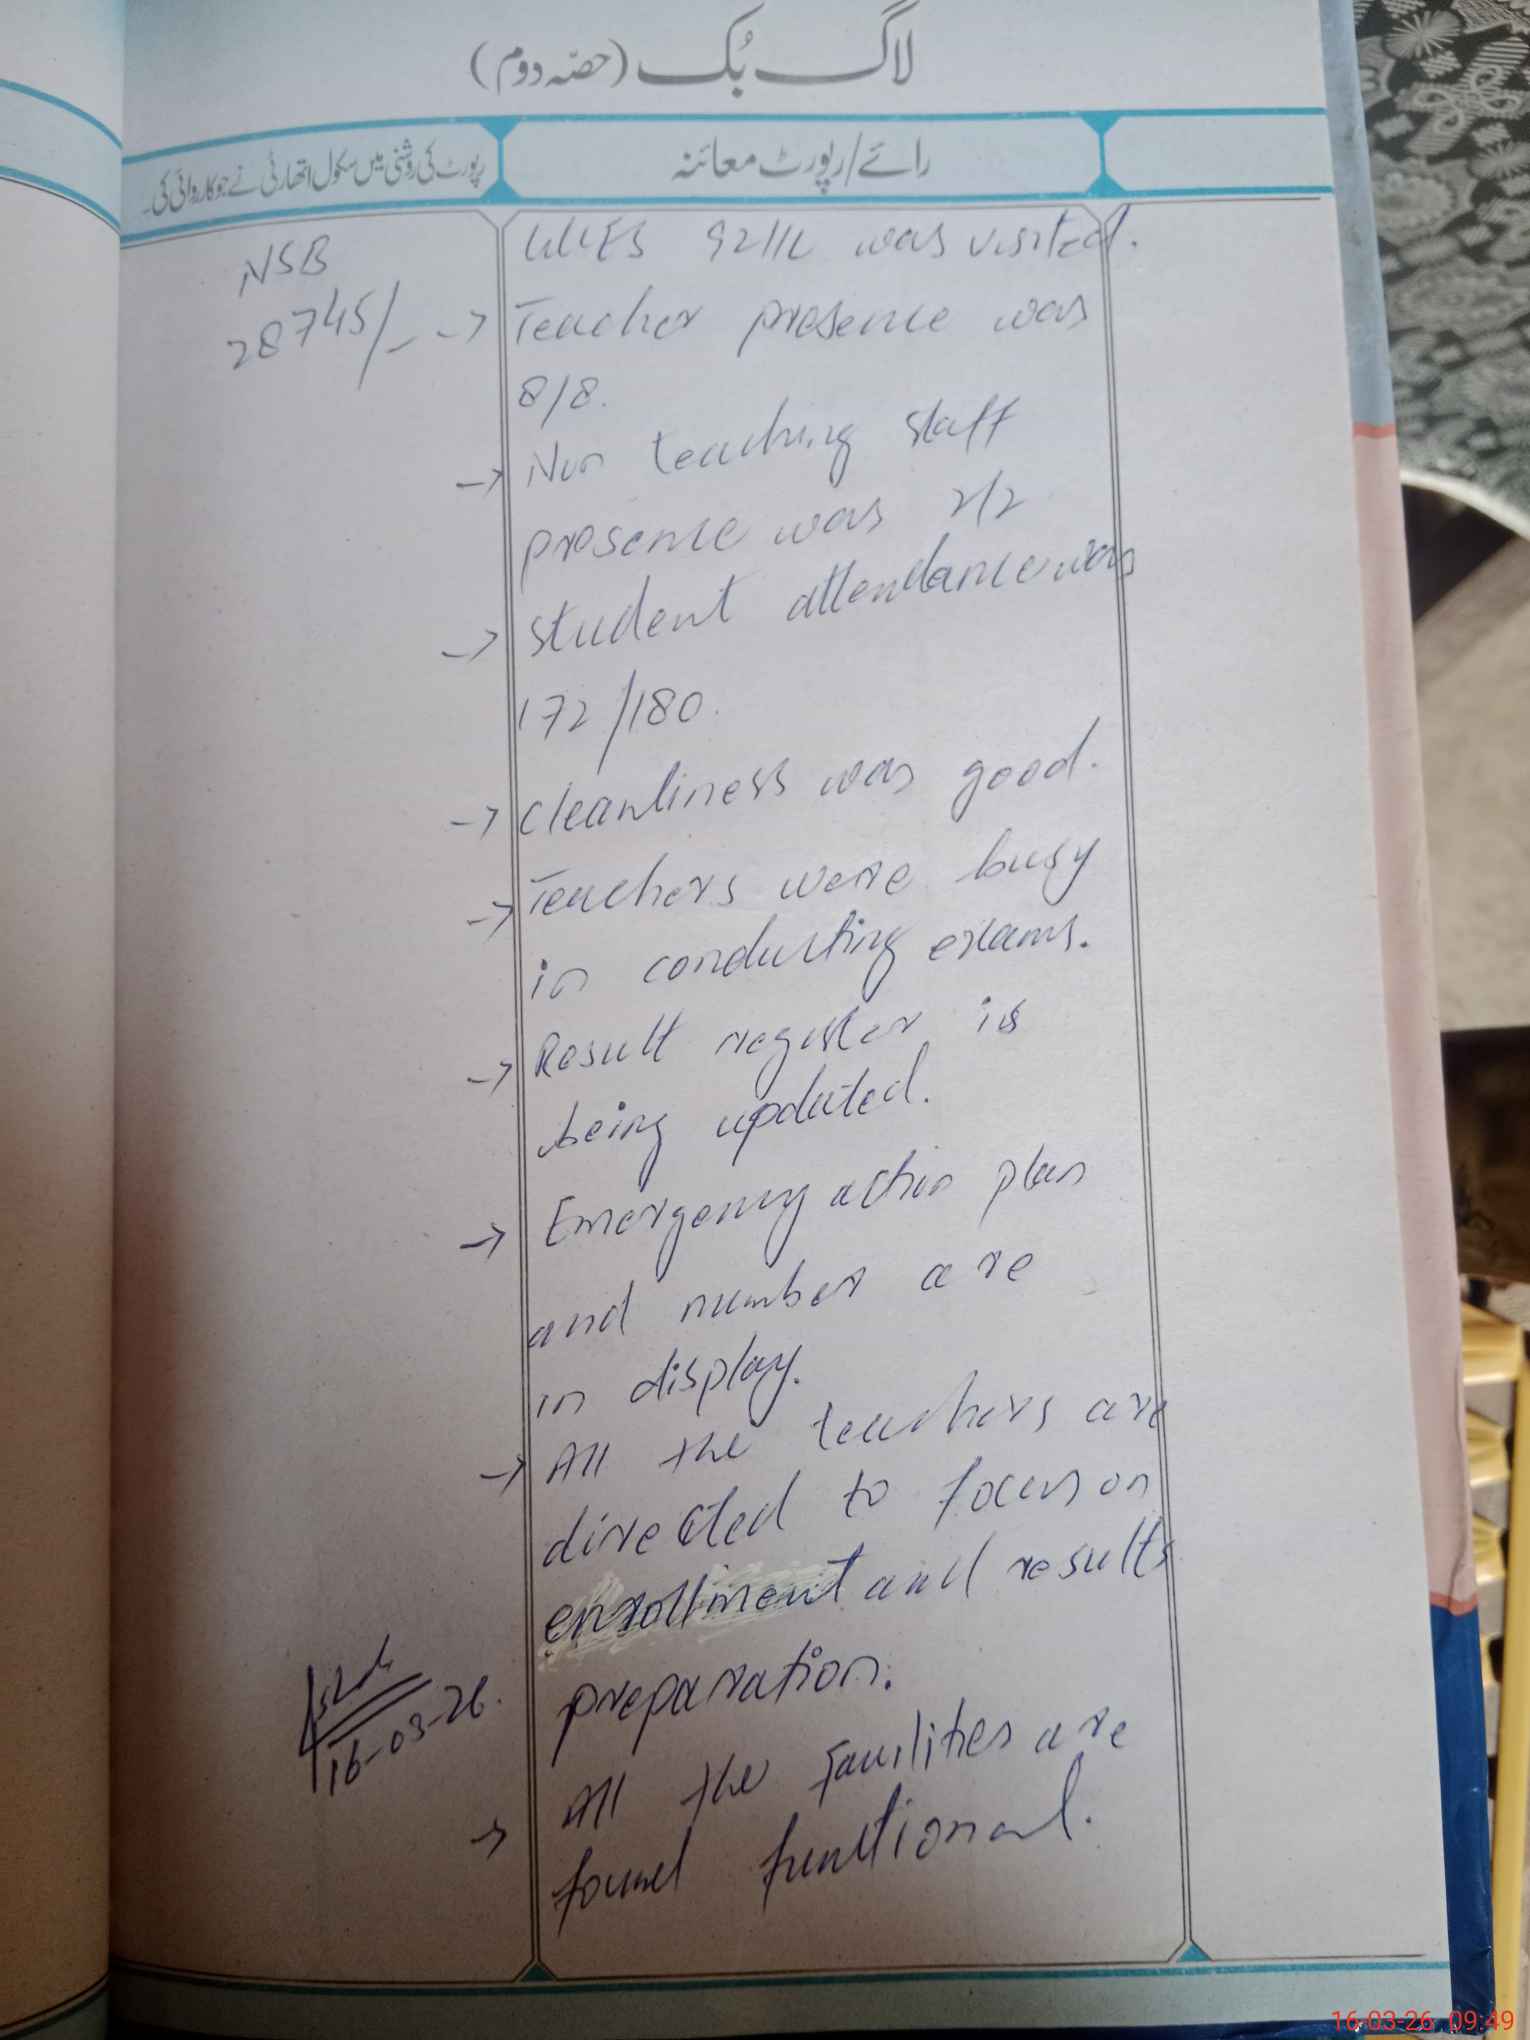 لاگ بُک (حصّہ دوم)
رائے/رپورٹ معائنہ
رپورٹ کی روشنی میں سکول اتھارٹی نے جو کاروائی کی۔
NSB
28745/-
was visited.
→ Teacher presence was
8/8.
→ Non teaching staff
presence was 2/2
→ Student attendance was
172/180.
→ Cleanliness was good.
→ Teachers were busy
in conducting exams.
→ Result register is
being updated.
→ Emergency action plan
and number are
in display.
→ All the teachers are
directed to focus on
enrollment and results
preparation.
→ All the facilities are
found functional.
16-03-26.
16-03-26 09:49